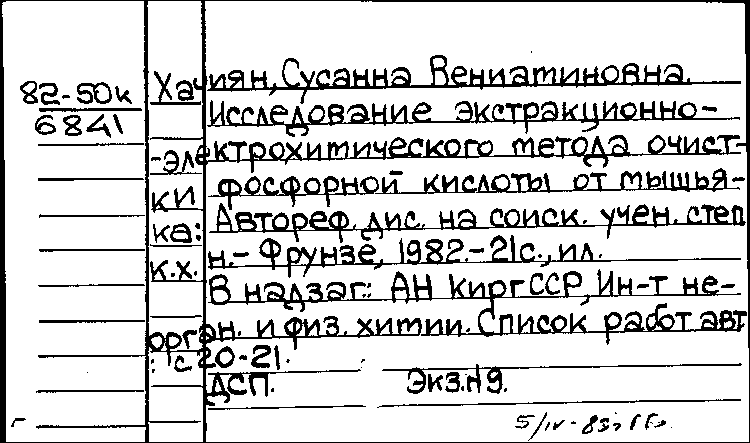 Хачиян, Сусанна Вениаминовна.
82-50к
6841
Исследование экстракционно-
-электрохимического метода очист-
ки фосфорной кислоты от мышья-
ка: Автореф. дис. на соиск. учен. степ
к.х.н.- Фрунзе, 1982.-21с., ил.
В надзаг.: АН КиргССР, Ин-т не-
орган. и физ. химии. Список работ авт
: с 20-21.
ДСП. Экз.№9.
5/IV-83г